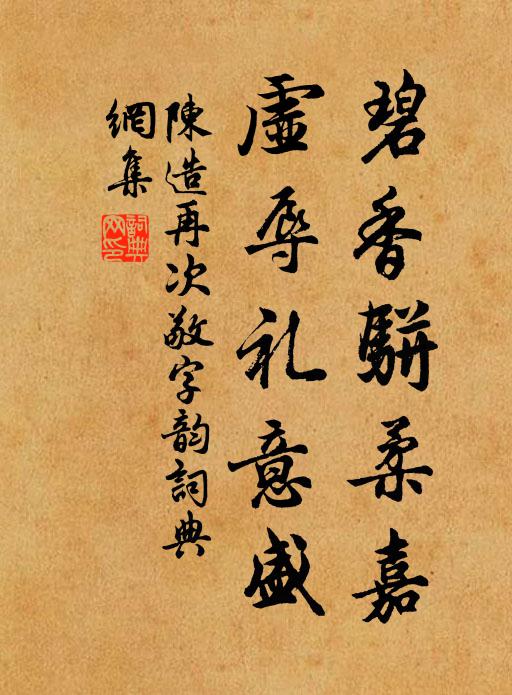 碧香駢柔嘉
虛辱礼意盛
陳造再次敬字韵詞典
網集
詞典網印